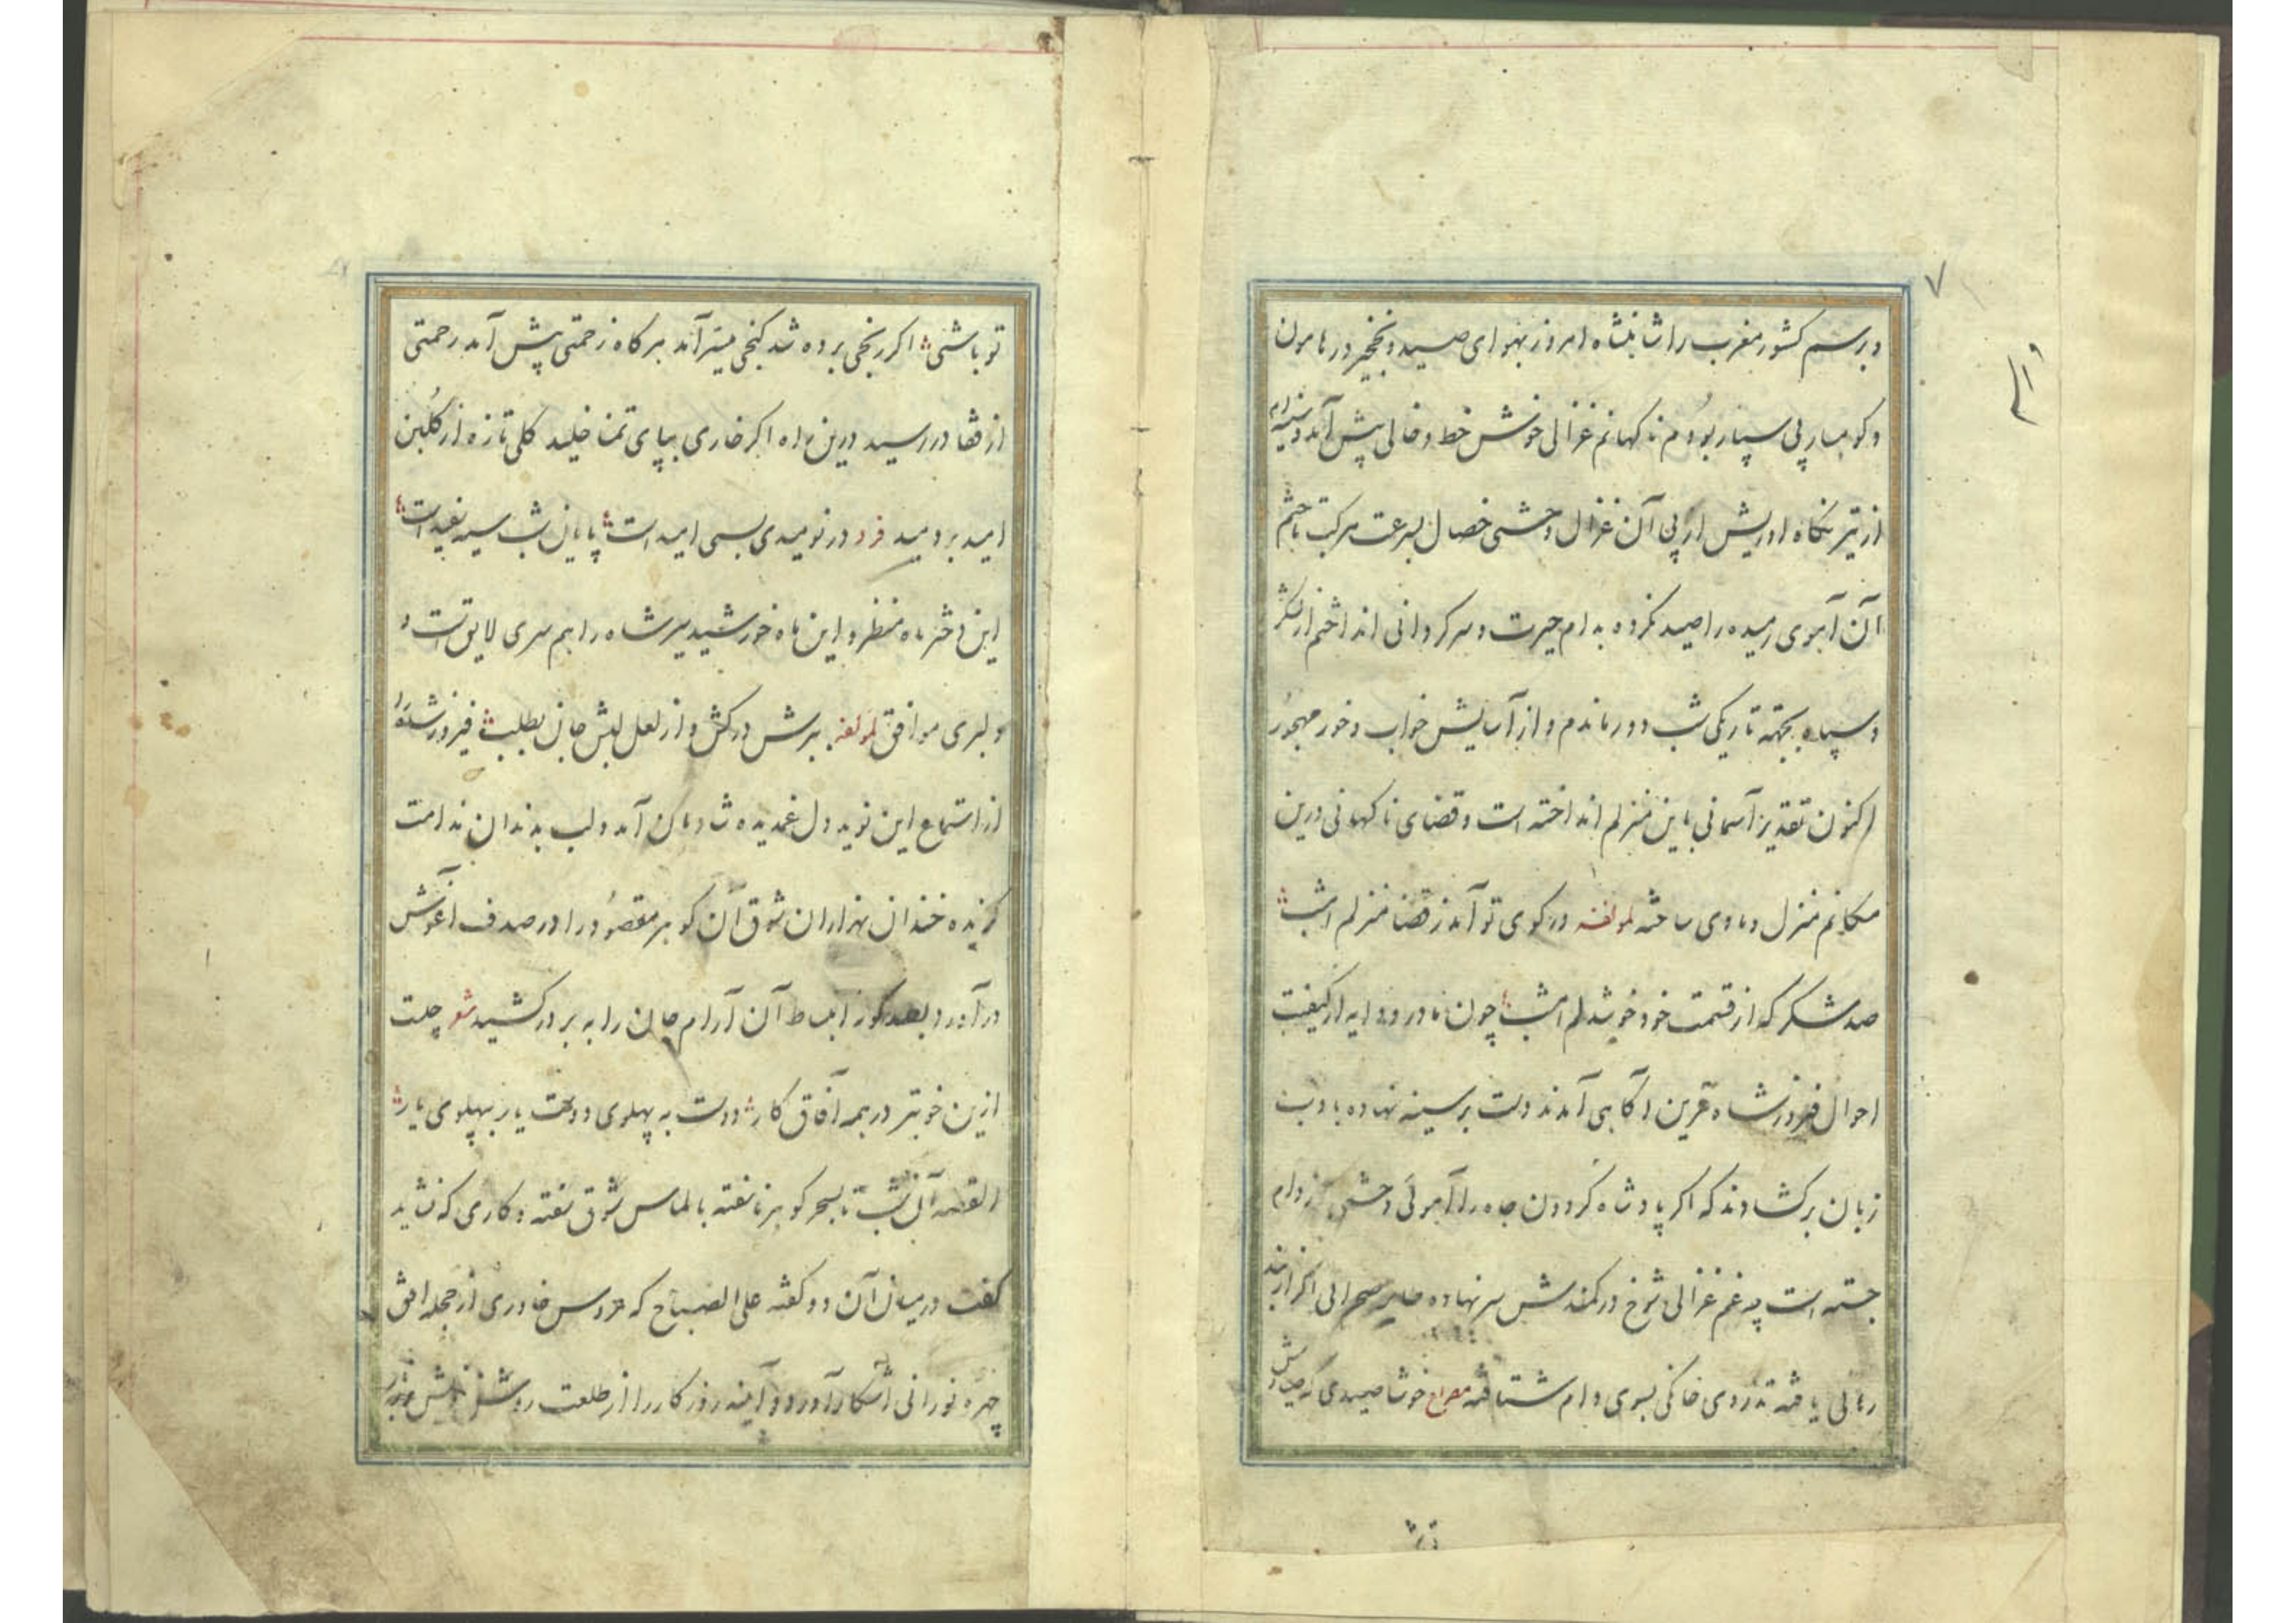 ۷
و برسم کشور مغرب را شاهنشاه امروز بهوای صید و نخجیر در هامون
و کوهسار پی سپار بودم ناکهانم غزالی خوش خط و خالی پیش آمد و سینه‌ام
از تیر نکاه او ریش از پی آن غزال وحشی خصال بسرعت مرکب تاختم
آن آهوی رمیده را صید نکرده بدام حیرت و سرکردانی انداختم از لشکر
و سپاه بجهته تاریکی شب دور ماندم و از آسایش خواب و خور مهجور
اکنون تقدیر آسمانی باین منزلم انداخته است و قضای ناکهانی درین
مکانم منزل و ماوی ساخته لمولفه در کوی تو آمد ز قضا منزلم امشب
صد شکر که از قسمت خود خوشدلم امشب چون مادر و دایه از کیفیت
احوال فیروز شاه قرین آکاهی آمدند دست بر سینه نهاده بادب
زبان برکشادند که اکر پادشاه کردون جاه را آهوئی وحشی از دام
جسته است چه غم غزالی شوخ در کمندش سر نهاده طایر صحرائی اکر از بند
رهائی یافته تذروی خانکی بسوی دام شتافته مصراع خوشا صیدی که صیادش
تو باشی اکر رنجی برده شد کنجی میسر آمد هرکاه زحمتی پیش آمد رحمتی
از قفا در رسید درین راه اکر خاری بپای تمنا خلید کلی تازه از کلبن
امید بر دمید فرد در نومیدی بسی امید است پایان شب سیه سفید است
این دختر ماه منظر و این ماه خورشید سیر شاه را همسری لایق است و
دلبری موافق لمولفه ببرش درکش و از لعل لبش جان بطلب فیروز شاه را
از استماع این نوید دل غمدیده شادمان آمد و لب بدندان ندامت
کزیده خندان بهزاران شوق آن کوهر مقصود را در صدف آغوش
در آورد بصد کونه انبساط آن آرام جان را به بر درکشید شعر چیست
ازین خوبتر در همه آفاق کار دوست به پهلوی دوست یار بپهلوی یار
القصه آن شب تا بسحر کوهر ناسفته بالماس شوق سفته و کاری که نشاید
کفت در میان آن دو کفته علی الصباح که عروس خاوری از حجله افق
چهره نورانی آشکار آورد و آینه روزکار را از طلعت روشن خویش